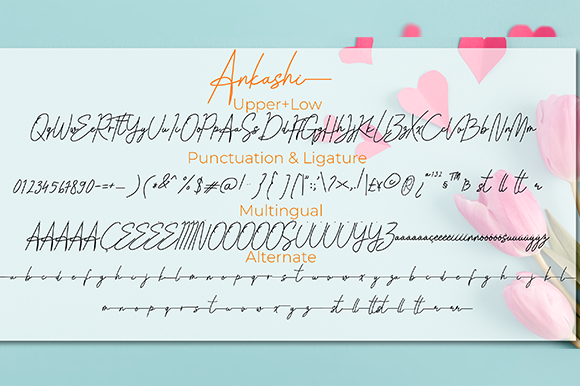 Ankashi
Upper+Low
QqWwEeRrTtYyUuIiOoPpAaSsDdFfGgHhJjKkLlZzXxCcVvBbNnMm
Punctuation & Ligature
01234567890-=+_ )(*&^%$#@!
st ll tt r
Multingual
AAAAAACEEEEIIIINOOOOOSUUUUYYZaaaaaaceeeeiiiinooooosuuuuyyz
Alternate
a b c d e f g h i j k l m n o p q r s t u v w x y z a b c d e f g h i j k l
m n o p q r s t u v w x y z st ll tt